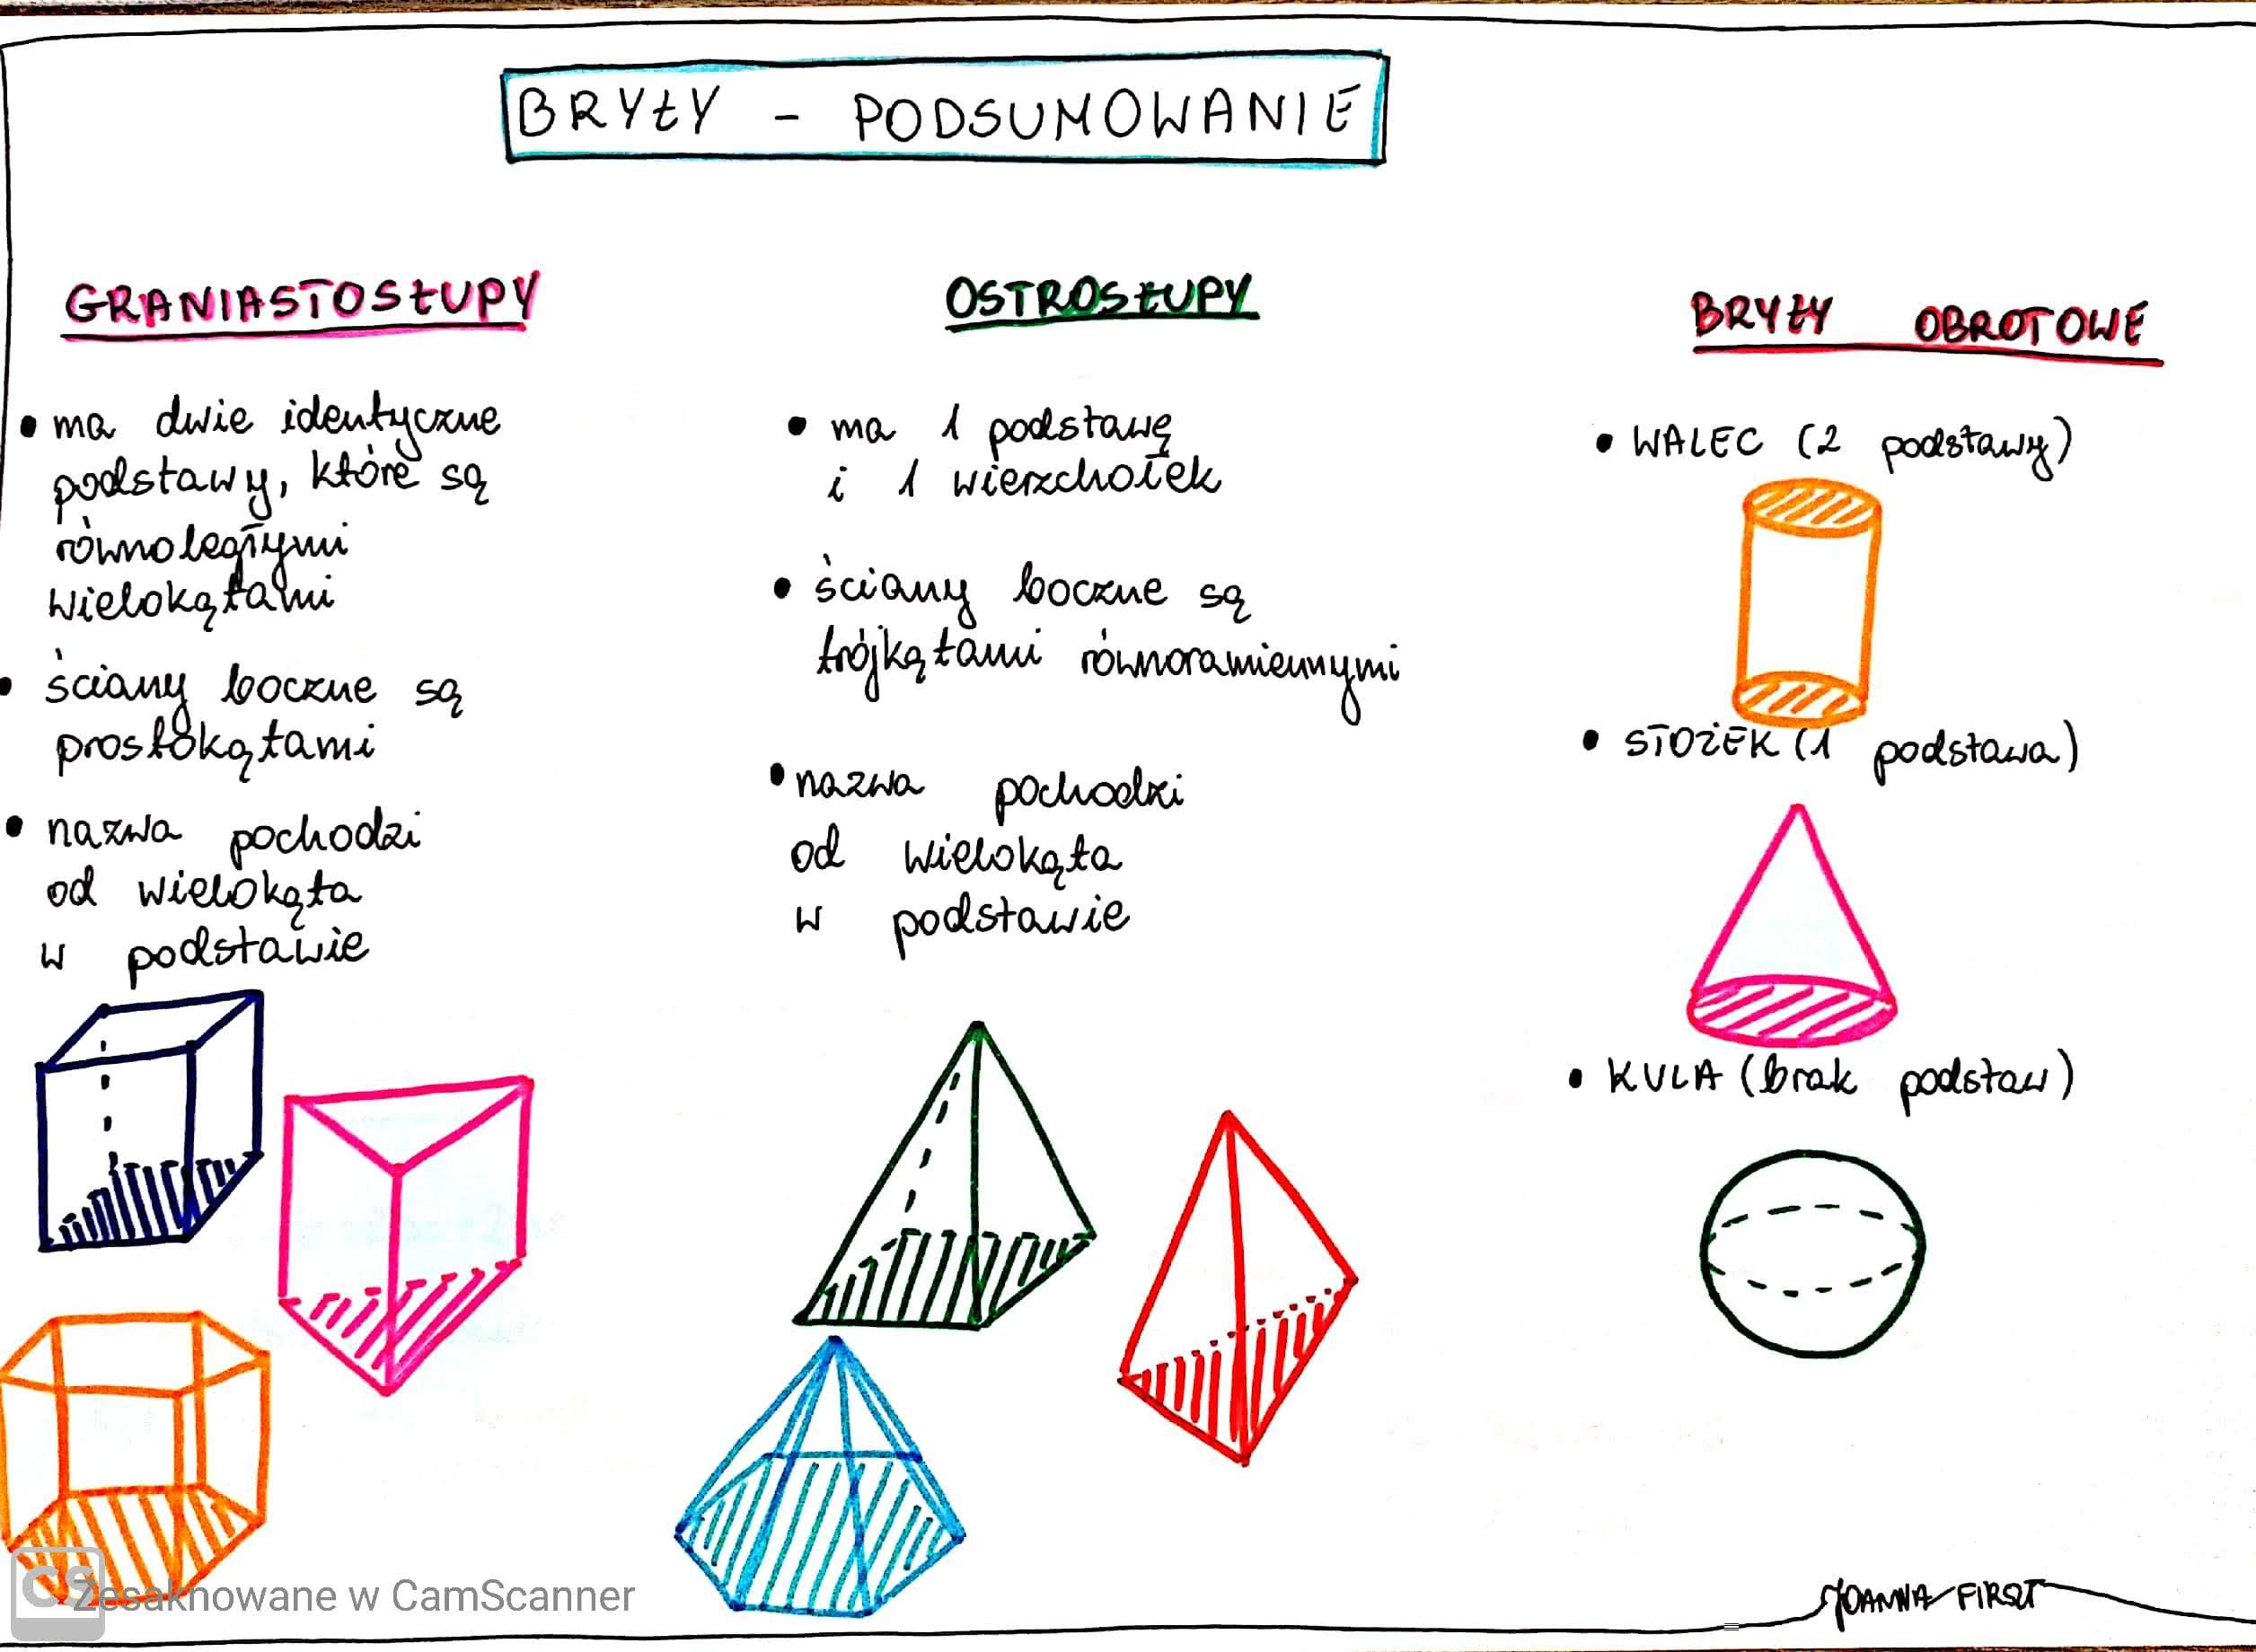 BRYŁY - PODSUMOWANIE
GRANIASTOSŁUPY
• ma dwie identyczne
podstawy, które są
równoległymi
wielokątami
• ściany boczne są
prostokątami
• nazwa pochodzi
od wielokąta
w podstawie
OSTROSŁUPY
• ma 1 podstawę
i 1 wierzchołek
• ściany boczne są
trójkątami równoramiennymi
• nazwa pochodzi
od wielokąta
w podstawie
BRYŁY OBROTOWE
• WALEC (2 podstawy)
• STOŻEK (1 podstawa)
• KULA (brak podstaw)
CS Zesaknowane w CamScanner
JOANNA FIRSZT